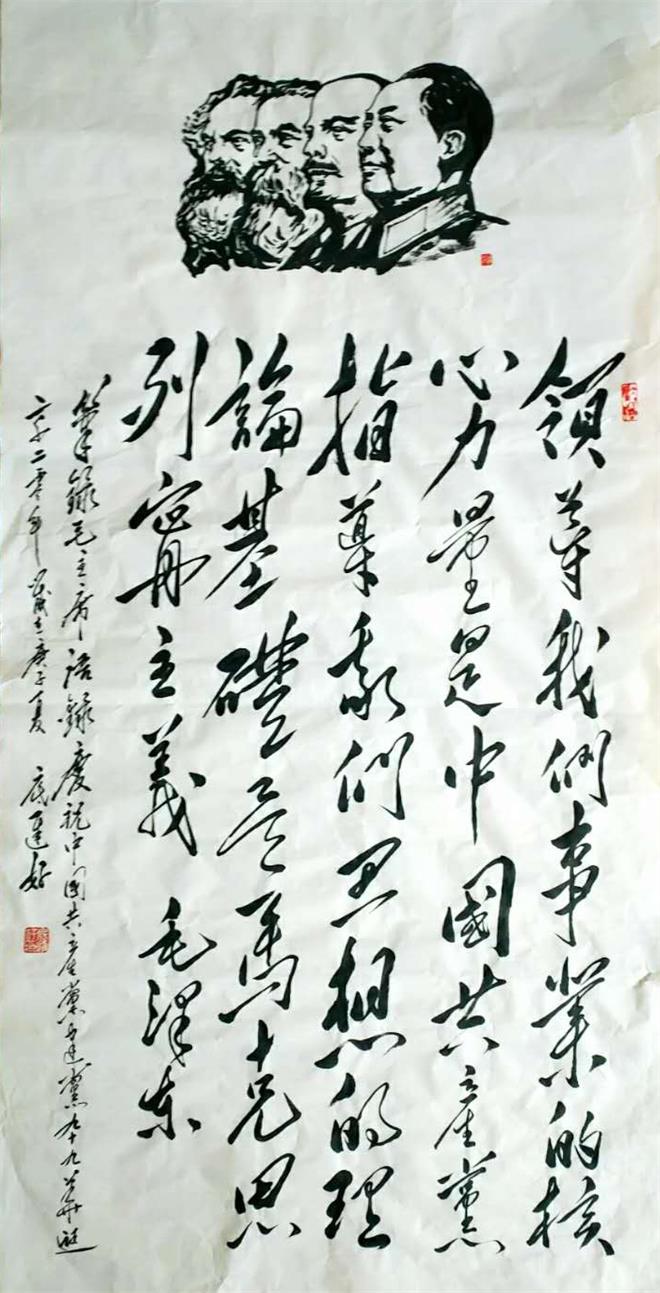 領導我們事業的核
心力量是中國共產黨
指導我們思想的理
論基礎是馬克思
列寧主義 毛澤东
筆錄毛主席語錄慶祝中國共產黨建黨九十九華誕
二零年歲在庚子夏